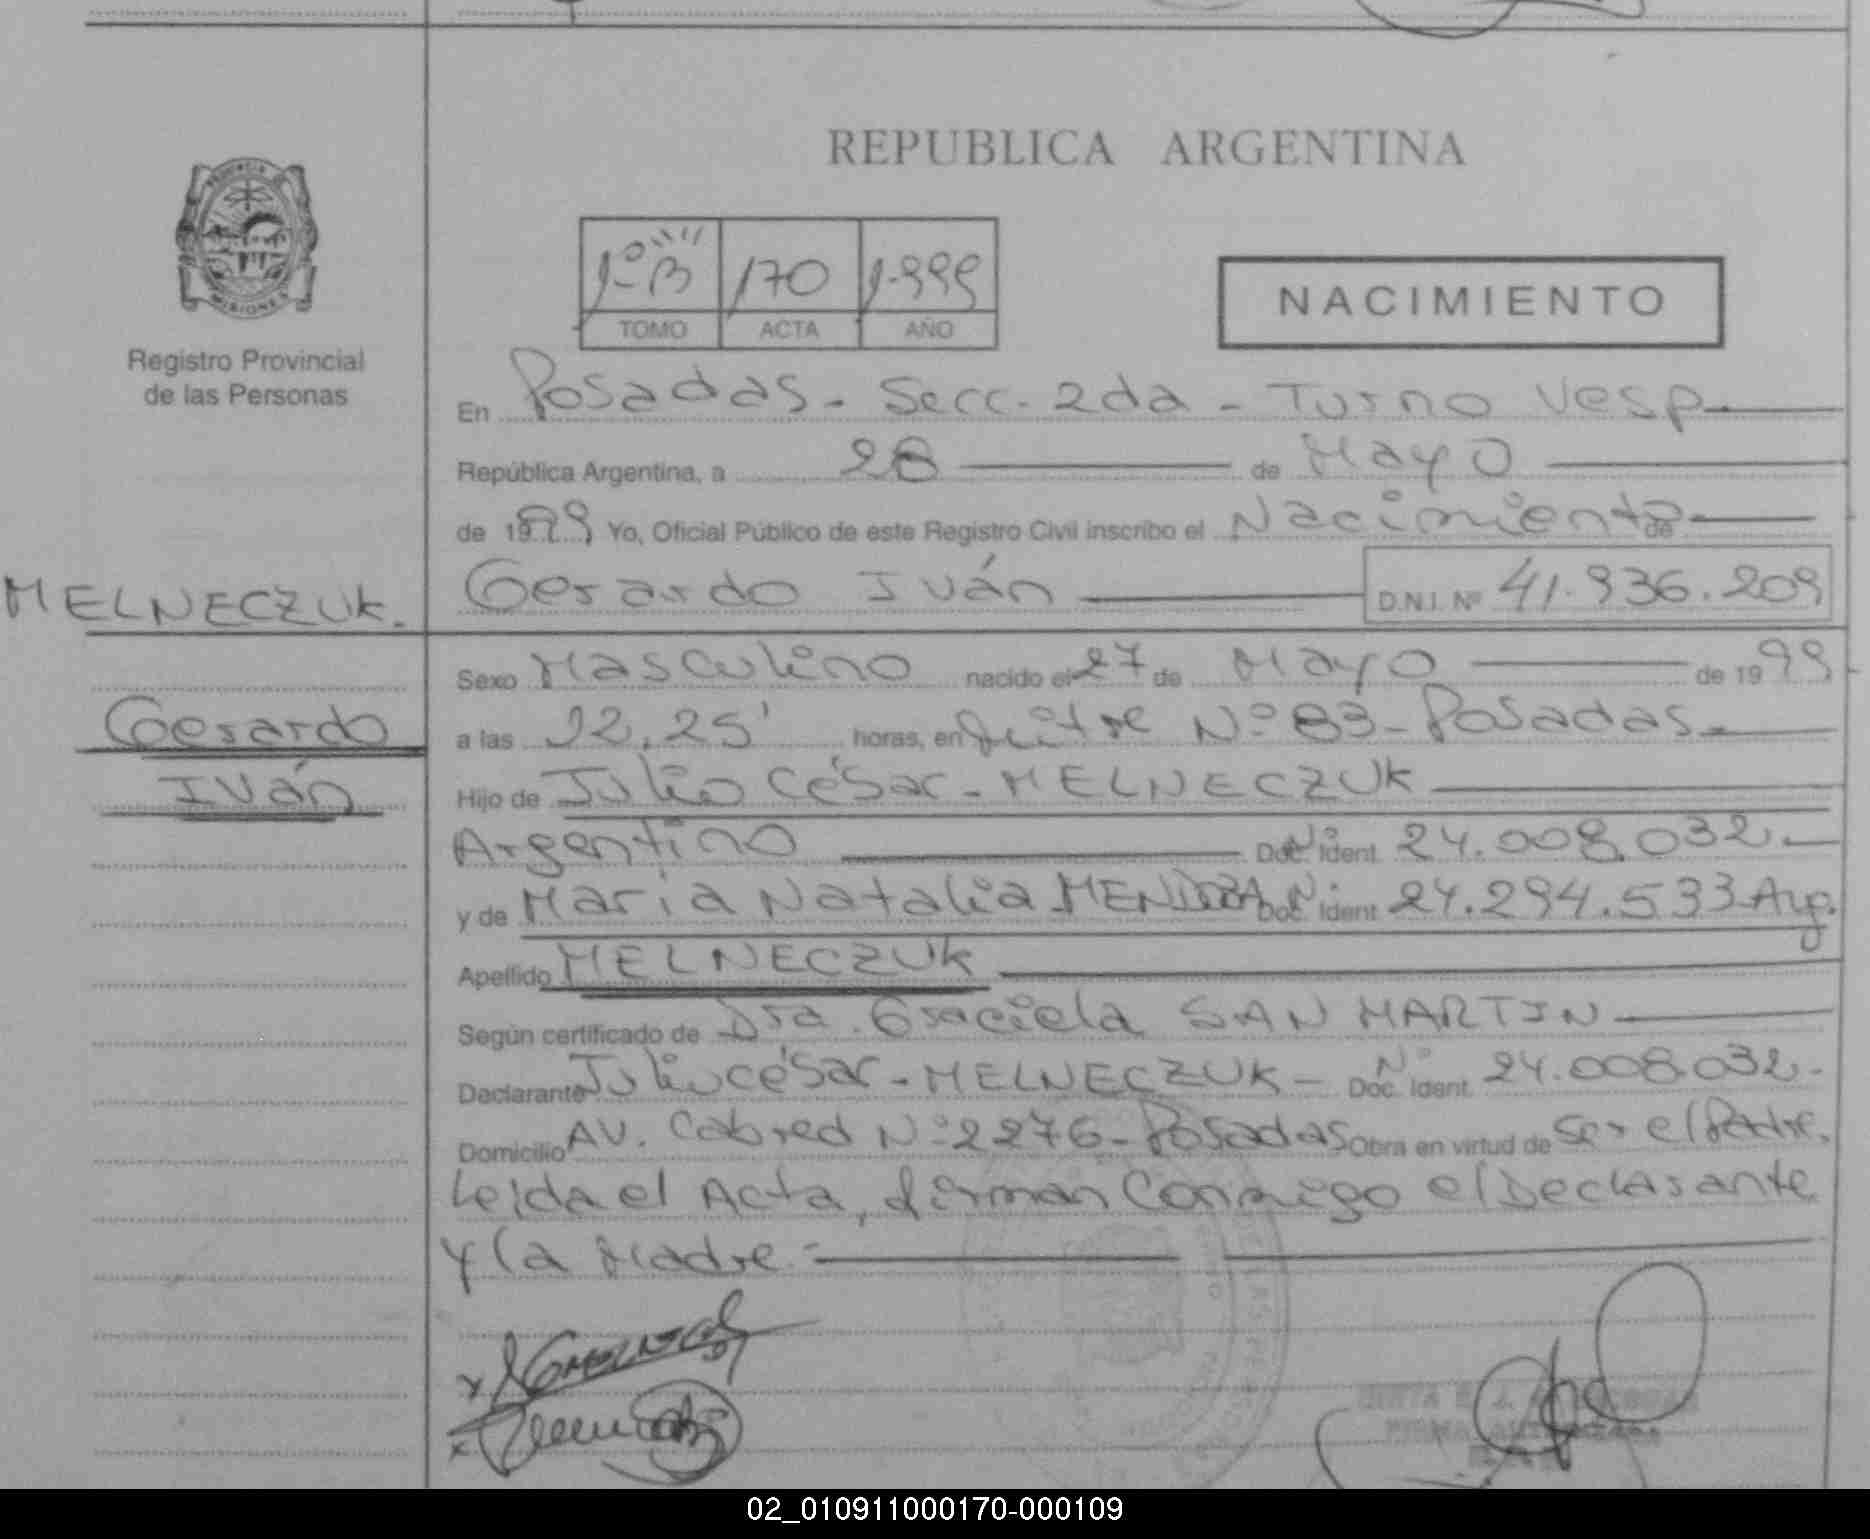 REPUBLICA ARGENTINA
PROVINCIA DE
MISIONES
Registro Provincial
de las Personas
1-º B 170 1.999
TOMO ACTA AÑO
NACIMIENTO
En Posadas - Secc. 2da - Turno Vesp
República Argentina, a 28 de Mayo
de 1999 Yo, Oficial Público de este Registro Civil inscribo el Nacimiento de
MELNECZUK.
Gerardo Iván D.N.I. Nº 41.936.209
Sexo Masculino nacido el 27 de Mayo de 1999
Gerardo
Iván
a las 12,25' horas, en Junín Nº 83 - Posadas
Hijo de Julio César - MELNECZUK
Argentino Doc. Ident. Nº 24.008.032.-
y de María Natalia MENDOZA Doc. Ident. Nº 24.294.533 Arg.
Apellido MELNECZUK
Según certificado de Dra. Graciela SAN MARTIN
Daclarante Julio César - MELNECZUK - Doc. Ident. Nº 24.008.032.-
Domicilio AV. Cabred Nº 2276 - Posadas Obra en virtud de ser el Padre.
Leida el Acta, firman Conmigo el Declarante
y la Madre.-
02_010911000170-000109